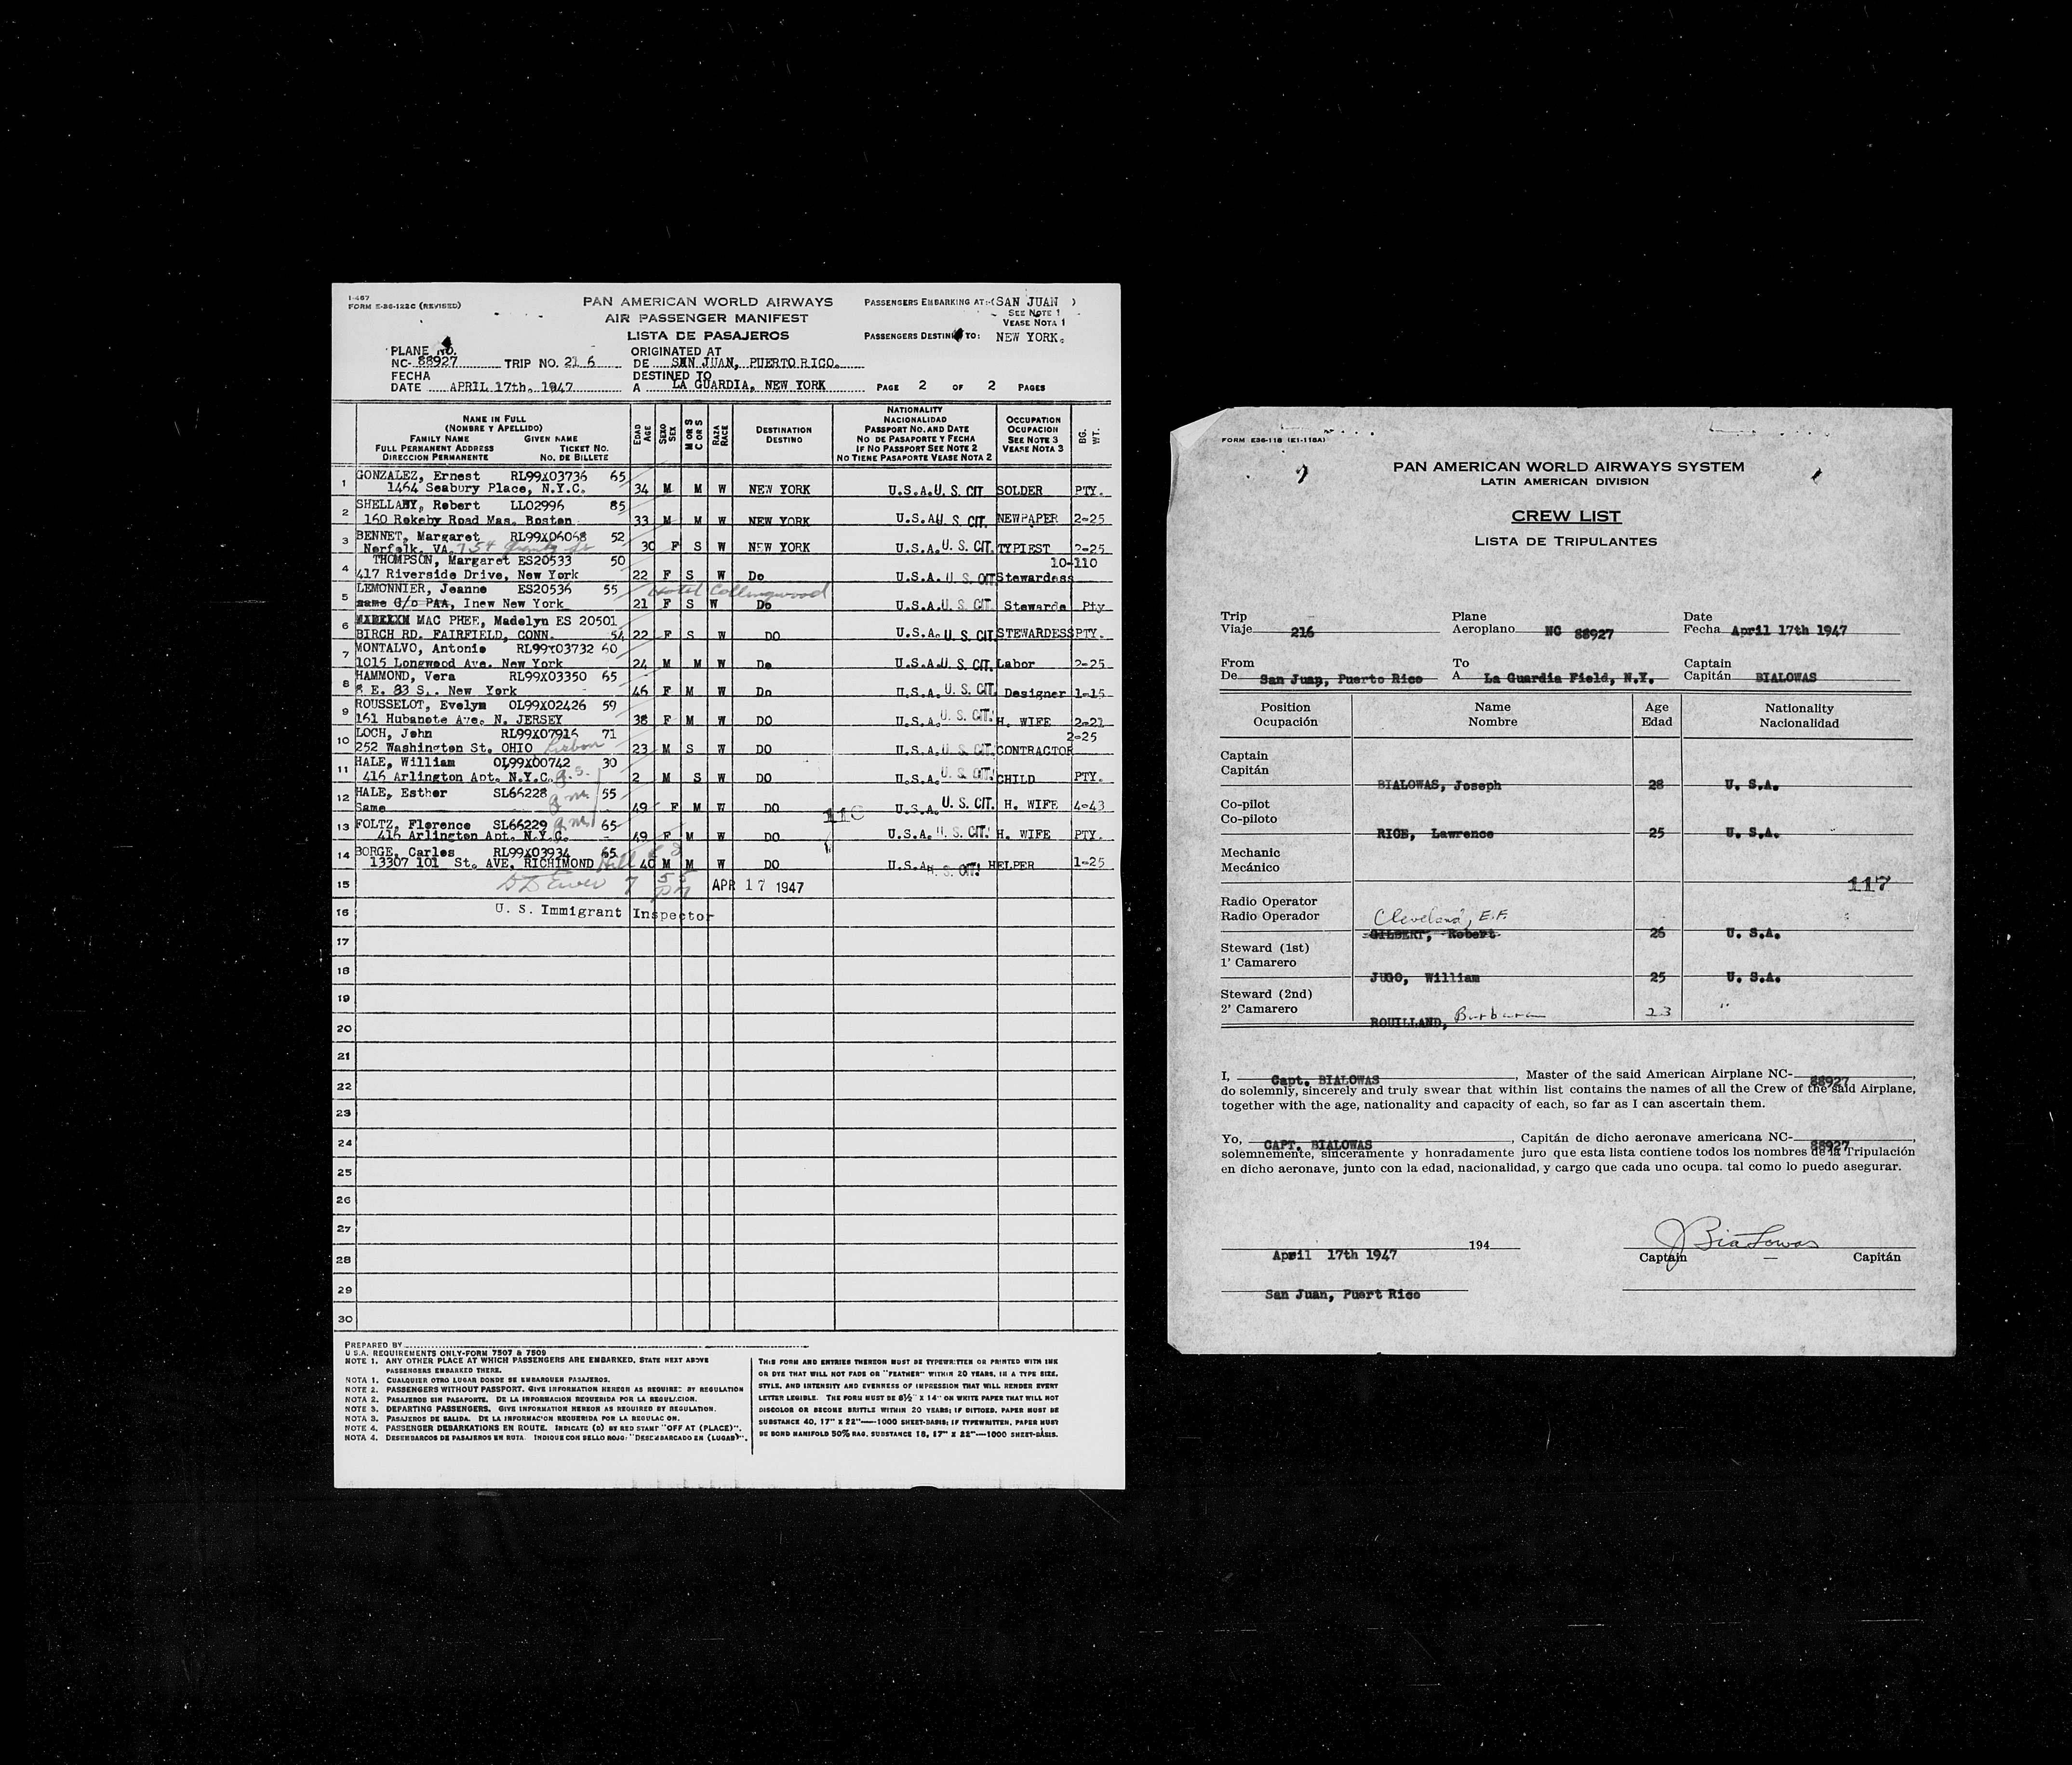 I-467
FORM E-36-122C (REVISED)
PAN AMERICAN WORLD AIRWAYS
AIR PASSENGER MANIFEST
LISTA DE PASAJEROS
PASSENGERS EMBARKING AT: (SAN JUAN )
SEE NOTE 1
VEASE NOTA 1
PASSENGERS DESTIN TO: NEW YORK.
PLANE NO.
NC- 88927 TRIP NO. 216
FECHA
DATE APRIL 17th. 1947
ORIGINATED AT
DE SAN JUAN, PUERTO RICO.
DESTINED TO
A LA GUARDIA, NEW YORK
PAGE 2 OF 2 PAGES
NAME IN FULL
(NOMBRE Y APELLIDO)
FAMILY NAME GIVEN NAME
FULL PERMANENT ADDRESS TICKET NO.
DIRECCION PERMANENTE NO. DE BILLETE
EDAD AGE
SEXO SEX
M OR S C OR S
RAZA RACE
DESTINATION
DESTINO
NATIONALITY
NACIONALIDAD
PASSPORT NO. AND DATE
NO DE PASAPORTE Y FECHA
IF NO PASSPORT SEE NOTE 2
NO TIENE PASAPORTE VEASE NOTA 2
OCCUPATION
OCUPACION
SEE NOTE 3
VEASE NOTA 3
BG. WT.
1 GONZALEZ, Ernest RL99X03736 65
1464 Seabury Place, N.Y.C. 34 M M W NEW YORK U.S.A. U. S. CIT SOLDER PTY.
2 SHELLABY, Robert LL02996 85
160 Rokeby Road Mas. Boston 33 M M W NEW YORK U.S.A. U. S. CIT. NEWPAPER 2-25
3 BENNET, Margaret RL99X06068 52
Norfolk, VA. 754 30 F S W NEW YORK U.S.A. U. S. CIT. TYPIEST 2-25
4 THOMPSON, Margaret ES20533 50 10-110
417 Riverside Drive, New York 22 F S W Do U.S.A. U. S. CIT Stewardess
5 LEMONNIER, Jeanne ES20536 55 Hotel Collingwood
same C/o PAA, Inew New York 21 F S W Do U.S.A. U. S. CIT. Stewards Pty
6 MAC PHEE, Madelyn ES 20501
BIRCH RD. FAIRFIELD, CONN. 54 22 F S W DO U.S.A. U. S. CIT. STEWARDESS PTY.
7 MONTALVO, Antonio RL99X03732 60
1015 Longwood Ave. New York 24 M M W Do U.S.A. U. S. CIT. Labor 2-25
8 HAMMOND, Vera RL99X03350 65
E. 83 S.. New York 46 F M W Do U.S.A. U. S. CIT. Designer 1-15
9 ROUSSELOT, Evelym OL99X02426 59
161 Hubanote Ave. N. JERSEY 38 F M W DO U.S.A. U. S. CIT. H. WIFE 2-21
10 LOCH, John RL99X07916 71 2-25
252 Washington St. OHIO Lisbon 23 M S W DO U.S.A. U. S. CIT. CONTRACTOR
11 HALE, William OL99X00742 30
416 Arlington Apt. N.Y.C. 2 M S W DO U.S.A. U. S. CIT. CHILD PTY.
12 HALE, Esther SL66228 55
Same 49 F M W DO U.S.A. U. S. CIT. H. WIFE 4-43
13 FOLTZ, Florence SL66229 65
416 Arlington Apt. N.Y.C. 49 F M W DO U.S.A. U. S. CIT. H. WIFE PTY.
14 BORGE, Carlos RL99X03934 65
13307 101 St. AVE. RICHIMOND Hill 40 M M W DO U.S.A. U. S. CIT. HELPER 1-25
15 APR 17 1947
16 U. S. Immigrant Inspector
17
18
19
20
21
22
23
24
25
26
27
28
29
30
PREPARED BY
U S.A. REQUIREMENTS ONLY-FORM 7507 & 7509
NOTE 1. ANY OTHER PLACE AT WHICH PASSENGERS ARE EMBARKED, STATE NEXT ABOVE
PASSENGERS EMBARKED THERE.
NOTA 1. CUALQUIER OTRO LUGAR DONDE SE EMBARQUEN PASAJEROS.
NOTE 2. PASSENGERS WITHOUT PASSPORT. GIVE INFORMATION HEREON AS REQUIRED BY REGULATION
NOTA 2. PASAJEROS SIN PASAPORTE. DE LA INFORMACION REQUERIDA POR LA REGULACION.
NOTE 3. DEPARTING PASSENGERS. GIVE INFORMATION HEREON AS REQUIRED BY REGULATION.
NOTA 3. PASAJEROS DE SALIDA. DE LA INFORMACION REQUERIDA POR LA REGULACION.
NOTE 4. PASSENGER DEBARKATIONS EN ROUTE. INDICATE (D) BY RED STAMP "OFF AT (PLACE)".
NOTA 4. DESEMBARCOS DE PASAJEROS EN RUTA. INDIQUE CON SELLO ROJO: "DESEMBARCADO EN (LUGAR)".
THIS FORM AND ENTRIES THEREON MUST BE TYPEWRITTEN OR PRINTED WITH INK
OR DYE THAT WILL NOT FADE OR "FEATHER" WITHIN 20 YEARS, IN A TYPE SIZE,
STYLE, AND INTENSITY AND EVENNESS OF IMPRESSION THAT WILL RENDER EVERY
LETTER LEGIBLE. THE FORM MUST BE 8½" X 14" ON WHITE PAPER THAT WILL NOT
DISCOLOR OR BECOME BRITTLE WITHIN 20 YEARS; IF DITTOED, PAPER MUST BE
SUBSTANCE 40, 17" X 22"—1000 SHEET-BASIS; IF TYPEWRITTEN, PAPER MUST
BE BOND MANIFOLD 50% RAG, SUBSTANCE 18, 17" X 22"—1000 SHEET-BASIS.
FORM E36-118 (E1-118A)
PAN AMERICAN WORLD AIRWAYS SYSTEM
LATIN AMERICAN DIVISION
CREW LIST
LISTA DE TRIPULANTES
Trip Plane Date
Viaje 216 Aeroplano NC 88927 Fecha April 17th 1947
From To Captain
De San Juan, Puerto Rico A La Guardia Field, N.Y. Capitán BIALOWAS
Position Name Age Nationality
Ocupación Nombre Edad Nacionalidad
Captain
Capitán
BIALOWAS, Joseph 28 U. S.A.
Co-pilot
Co-piloto
RICE, Lawrence 25 U. S.A.
Mechanic
Mecánico
117
Radio Operator
Radio Operador Cleveland, E.F.
GILBERT, Robert 26 U. S.A.
Steward (1st)
1' Camarero
JUGO, William 25 U. S.A.
Steward (2nd)
2' Camarero
ROUILLAND, Barbara 23 "
I, Capt. BIALOWAS, Master of the said American Airplane NC- 88927,
do solemnly, sincerely and truly swear that within list contains the names of all the Crew of the said Airplane,
together with the age, nationality and capacity of each, so far as I can ascertain them.
Yo, CAPT. BIALOWAS, Capitán de dicho aeronave americana NC- 88927,
solemnemente, sinceramente y honradamente juro que esta lista contiene todos los nombres de la Tripulación
en dicho aeronave, junto con la edad, nacionalidad, y cargo que cada uno ocupa. tal como lo puedo asegurar.
April 17th 1947 194
J Bialowas
Captain — Capitán
San Juan, Puert Rico